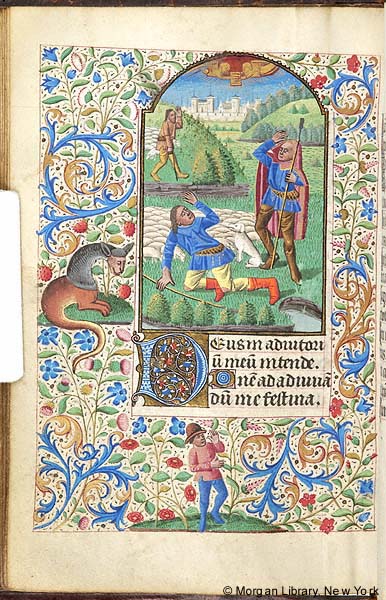 Deus in adiutori
ū meū intende.
Dn̄e ad adiuuā
dū me festina.
© Morgan Library, New York